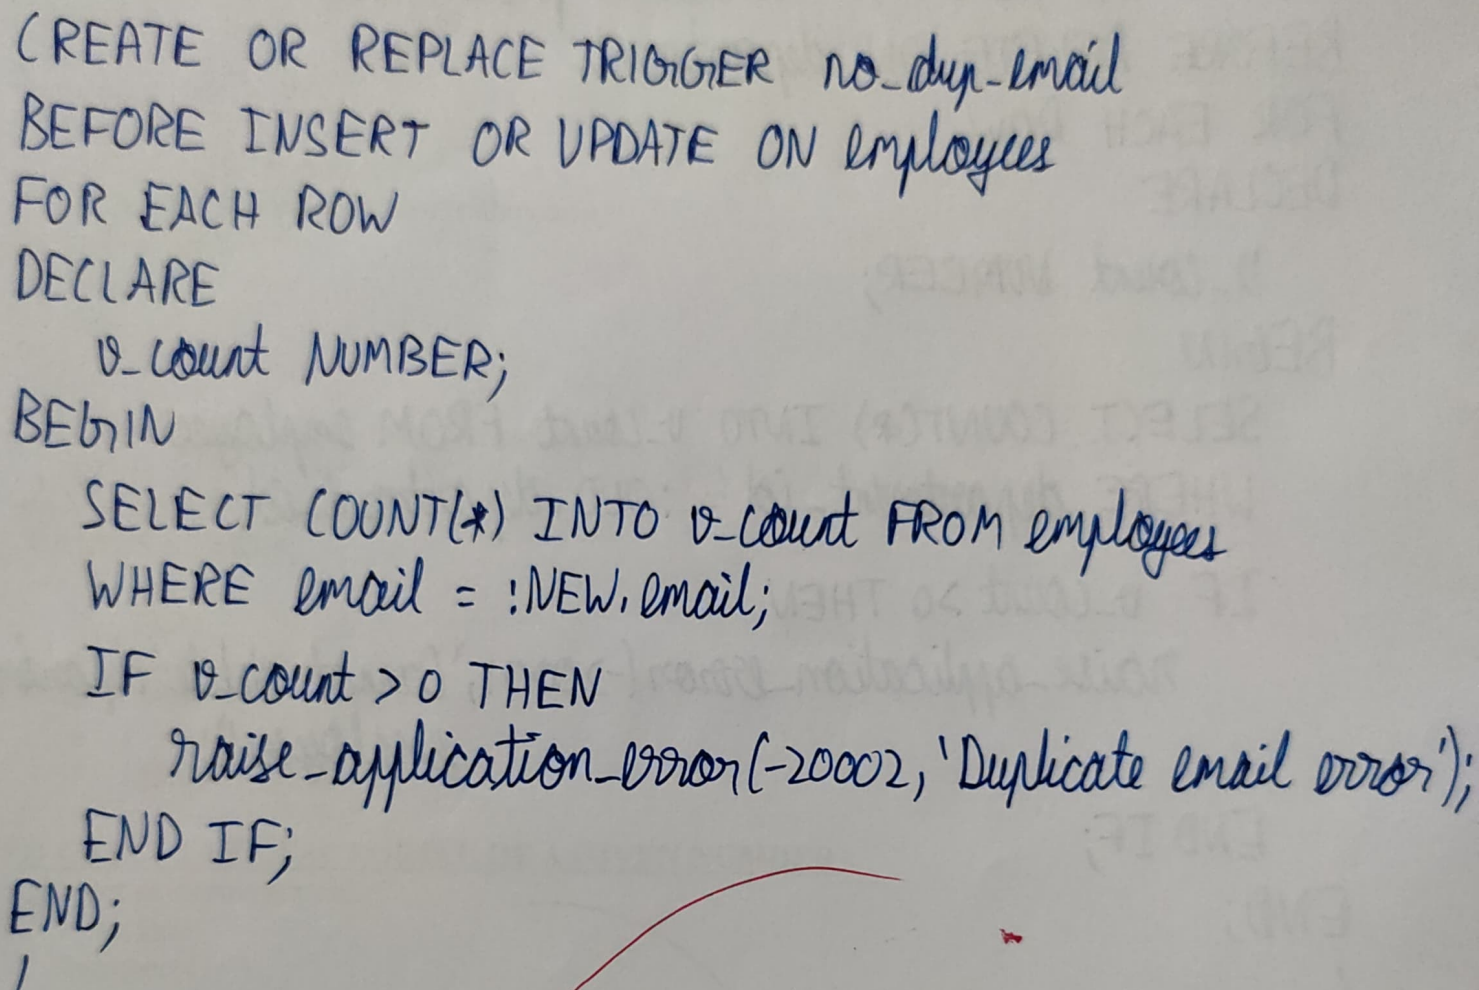 CREATE OR REPLACE TRIGGER no_dup_email
BEFORE INSERT OR UPDATE ON employees
FOR EACH ROW
DECLARE
v_count NUMBER;
BEGIN
SELECT COUNT(*) INTO v_count FROM employees
WHERE email = :NEW.email;
IF v_count > 0 THEN
raise_application_error(-20002, 'Duplicate email error');
END IF;
END;
/